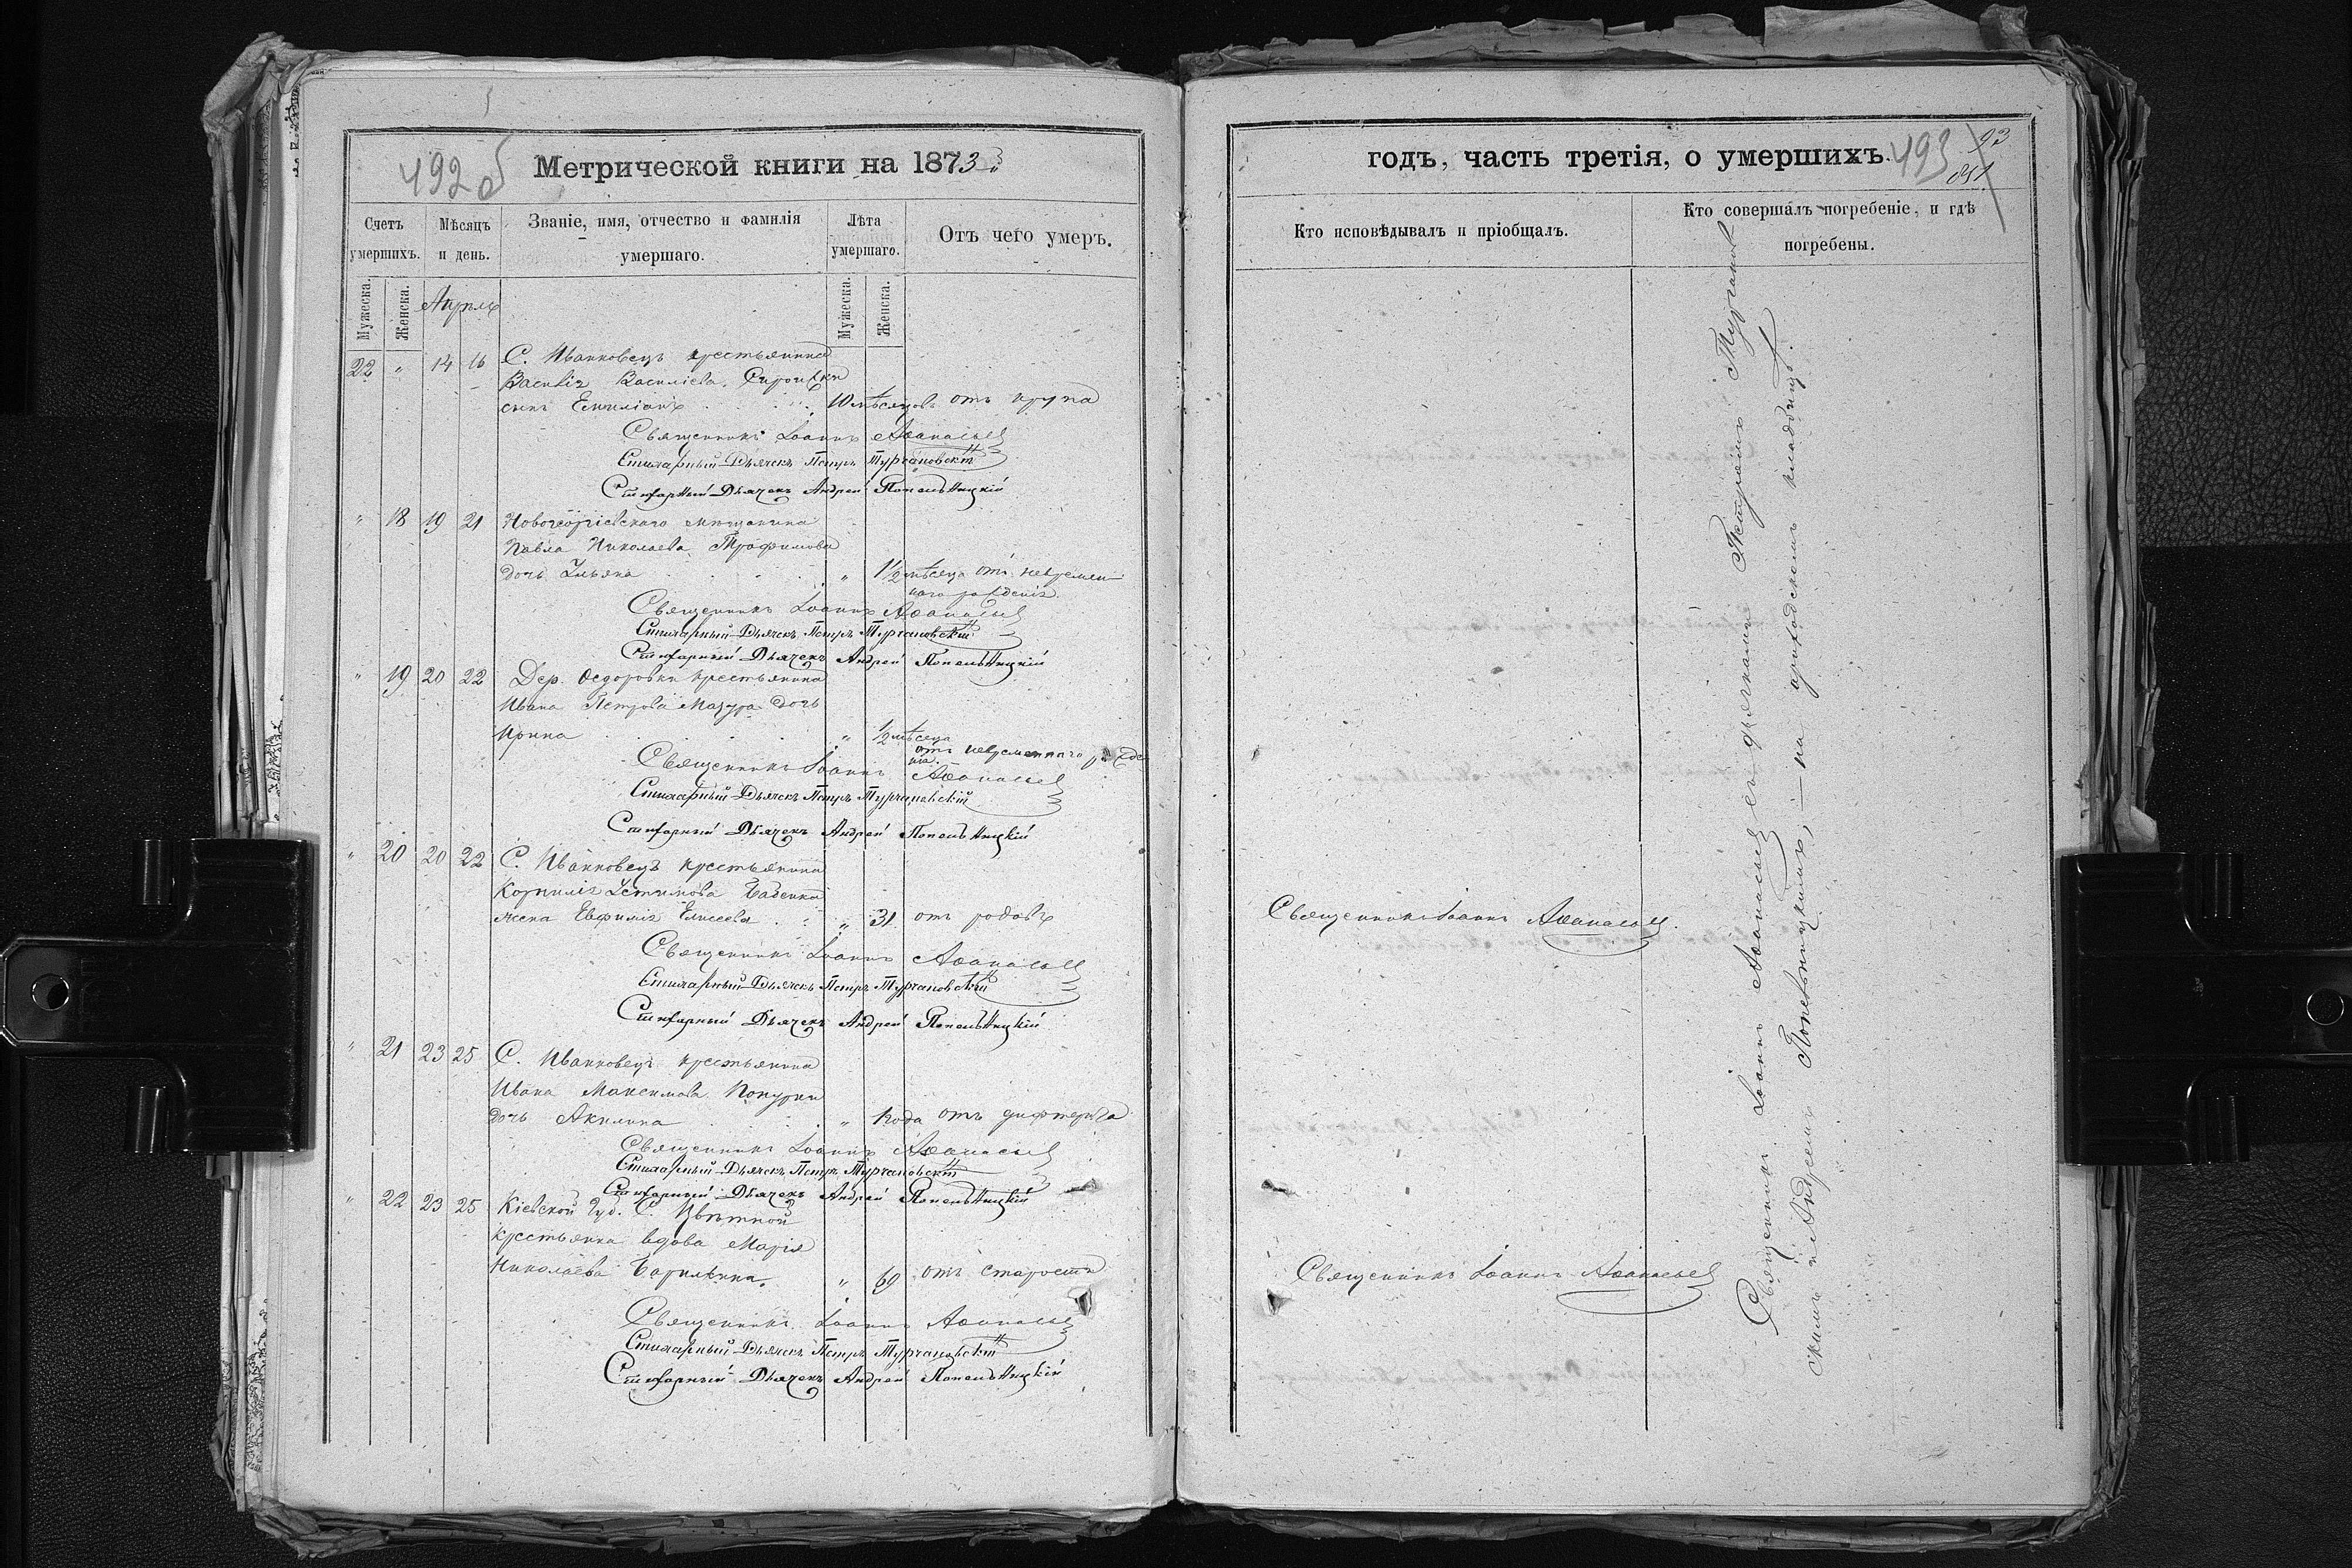 492 об
Метрической книги на 1873
Счетъ умершихъ.
Мѣсяцъ и день.
Званіе, имя, отчество и фамилія умершаго.
Лѣта умершаго.
Отъ чего умеръ.
Мужеска.
Женска.
Апрѣль
Мужеска.
Женска.
22 " 14 16 С. Иванковецъ крестьянина
Василія Василіева
сынъ Емиліанъ 10 мѣсяцовъ отъ крупа
Священникъ Іоаннъ Аѳанасьев
Стихарный Дьячекъ Петръ Тургановскій
Стихарный Дьячекъ Андрей Попельницкій
" 18 19 21 Новогеоргіевскаго мѣщанина
Павла Николаева Трофимова
дочь Ульяна " 1/2 мѣсяца отъ невремен
наго рожденія.
Священникъ Іоаннъ Аѳанасьев
Стихарный Дьячекъ Петръ Тургановскій
Стихарный Дьячекъ Андрей Попельницкій
" 19 20 22 Дер. Ѳедоровки крестьянина
Ивана Петрова Мазура дочь
Ирина " 1/2 мѣсяца
отъ невременнаго рожде
нія.
Священникъ Іоаннъ Аѳанасьев
Стихарный Дьячекъ Петръ Тургановскій
Стихарный Дьячекъ Андрей Попельницкій
" 20 20 22 С. Иванковецъ крестьянина
Корнилія Устимова Бабенка
жена Евфимія Елисеева " 31 отъ родовъ
Священникъ Іоаннъ Аѳанасьев
Стихарный Дьячекъ Петръ Тургановскій
Стихарный Дьячекъ Андрей Попельницкій
" 21 23 25 С. Иванковецъ крестьянина
Ивана Максимова
дочь Акилина " 1 года отъ дифтерита
Священникъ Іоаннъ Аѳанасьев
Стихарный Дьячекъ Петръ Тургановскій
Стихарный Дьячекъ Андрей Попельницкій
" 22 23 25 Кіевской Губ. С. Цвѣтной
крестьянка вдова Марія
Николаева " 69 отъ старости
Священникъ Іоаннъ Аѳанасьев
Стихарный Дьячекъ Петръ Тургановскій
Стихарный Дьячекъ Андрей Попельницкій
годъ, часть третія, о умершихъ.
493
93
Кто исповѣдывалъ и пріобщалъ.
Кто совершалъ погребеніе, и гдѣ погребены.
Священникъ Іоаннъ Аѳанасьев.
Священникъ Іоаннъ Аѳанасьев
Священникъ Іоаннъ Аѳанасьев съ дьячками Петромъ Турганов
скимъ и Андреемъ Попельницкимъ, — на приходскомъ кладбищѣ.